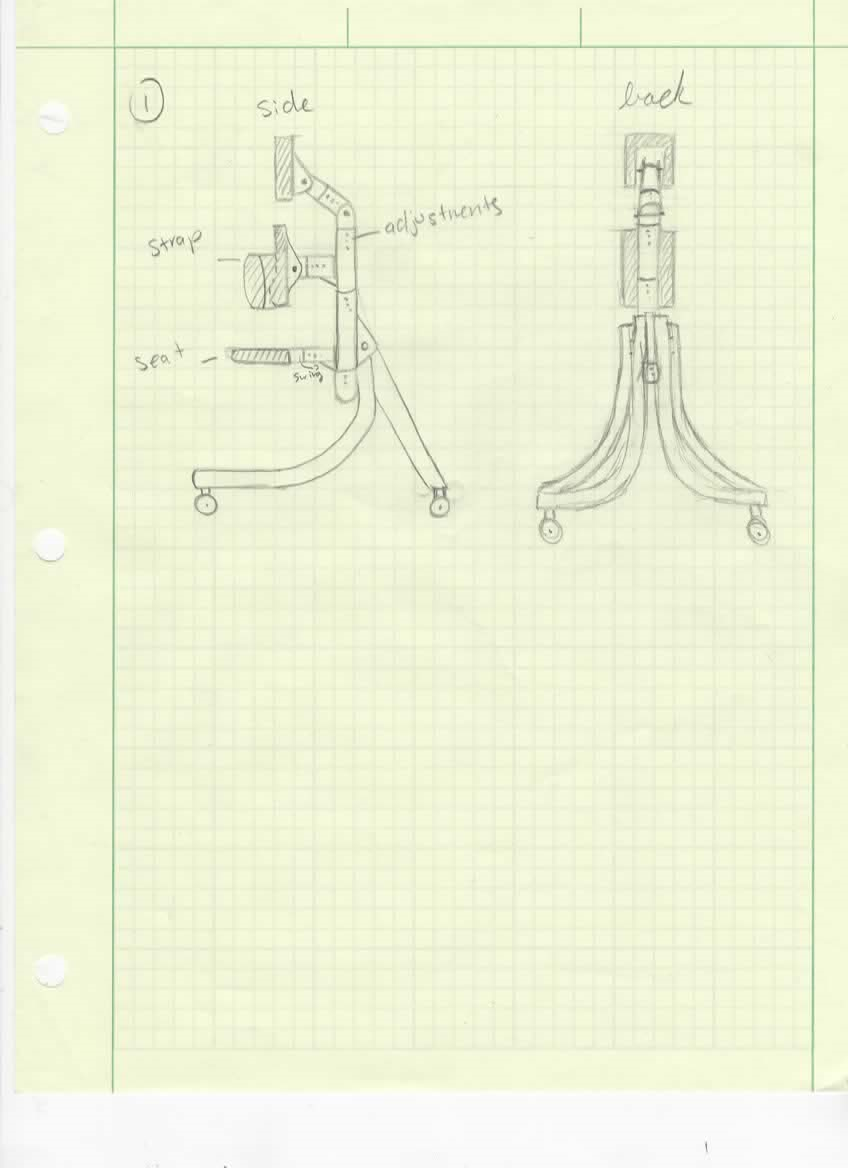 1
side
back
adjustments
strap
seat
swing